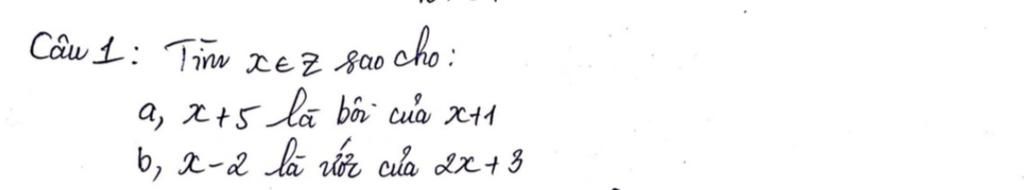 Câu 1: Tìm x ∈ Z sao cho:
a, x+5 là bội của x+1
b, x-2 là ước của 2x+3